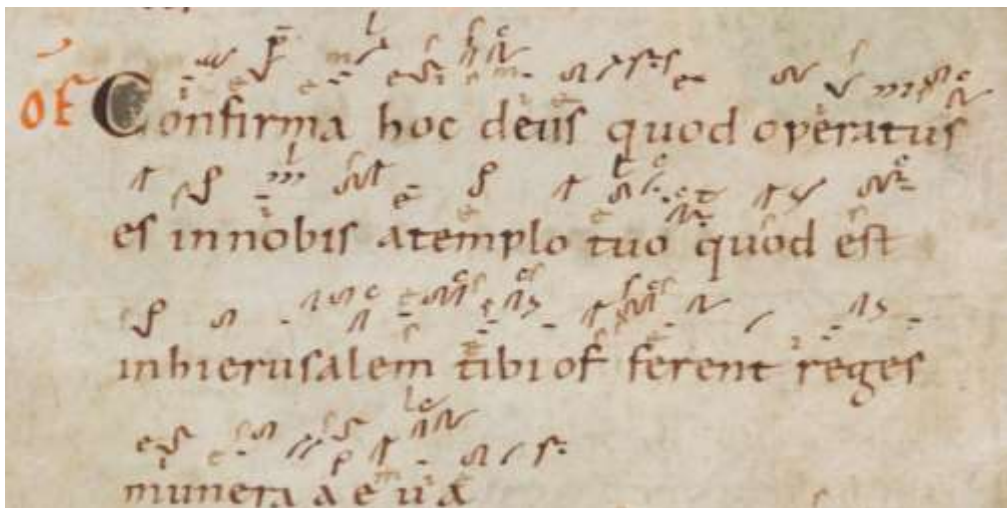 OF Confirma hoc deus quod operatus
es in nobis a templo tuo quod est
in hierusalem tibi of ferent reges
munera aeuia